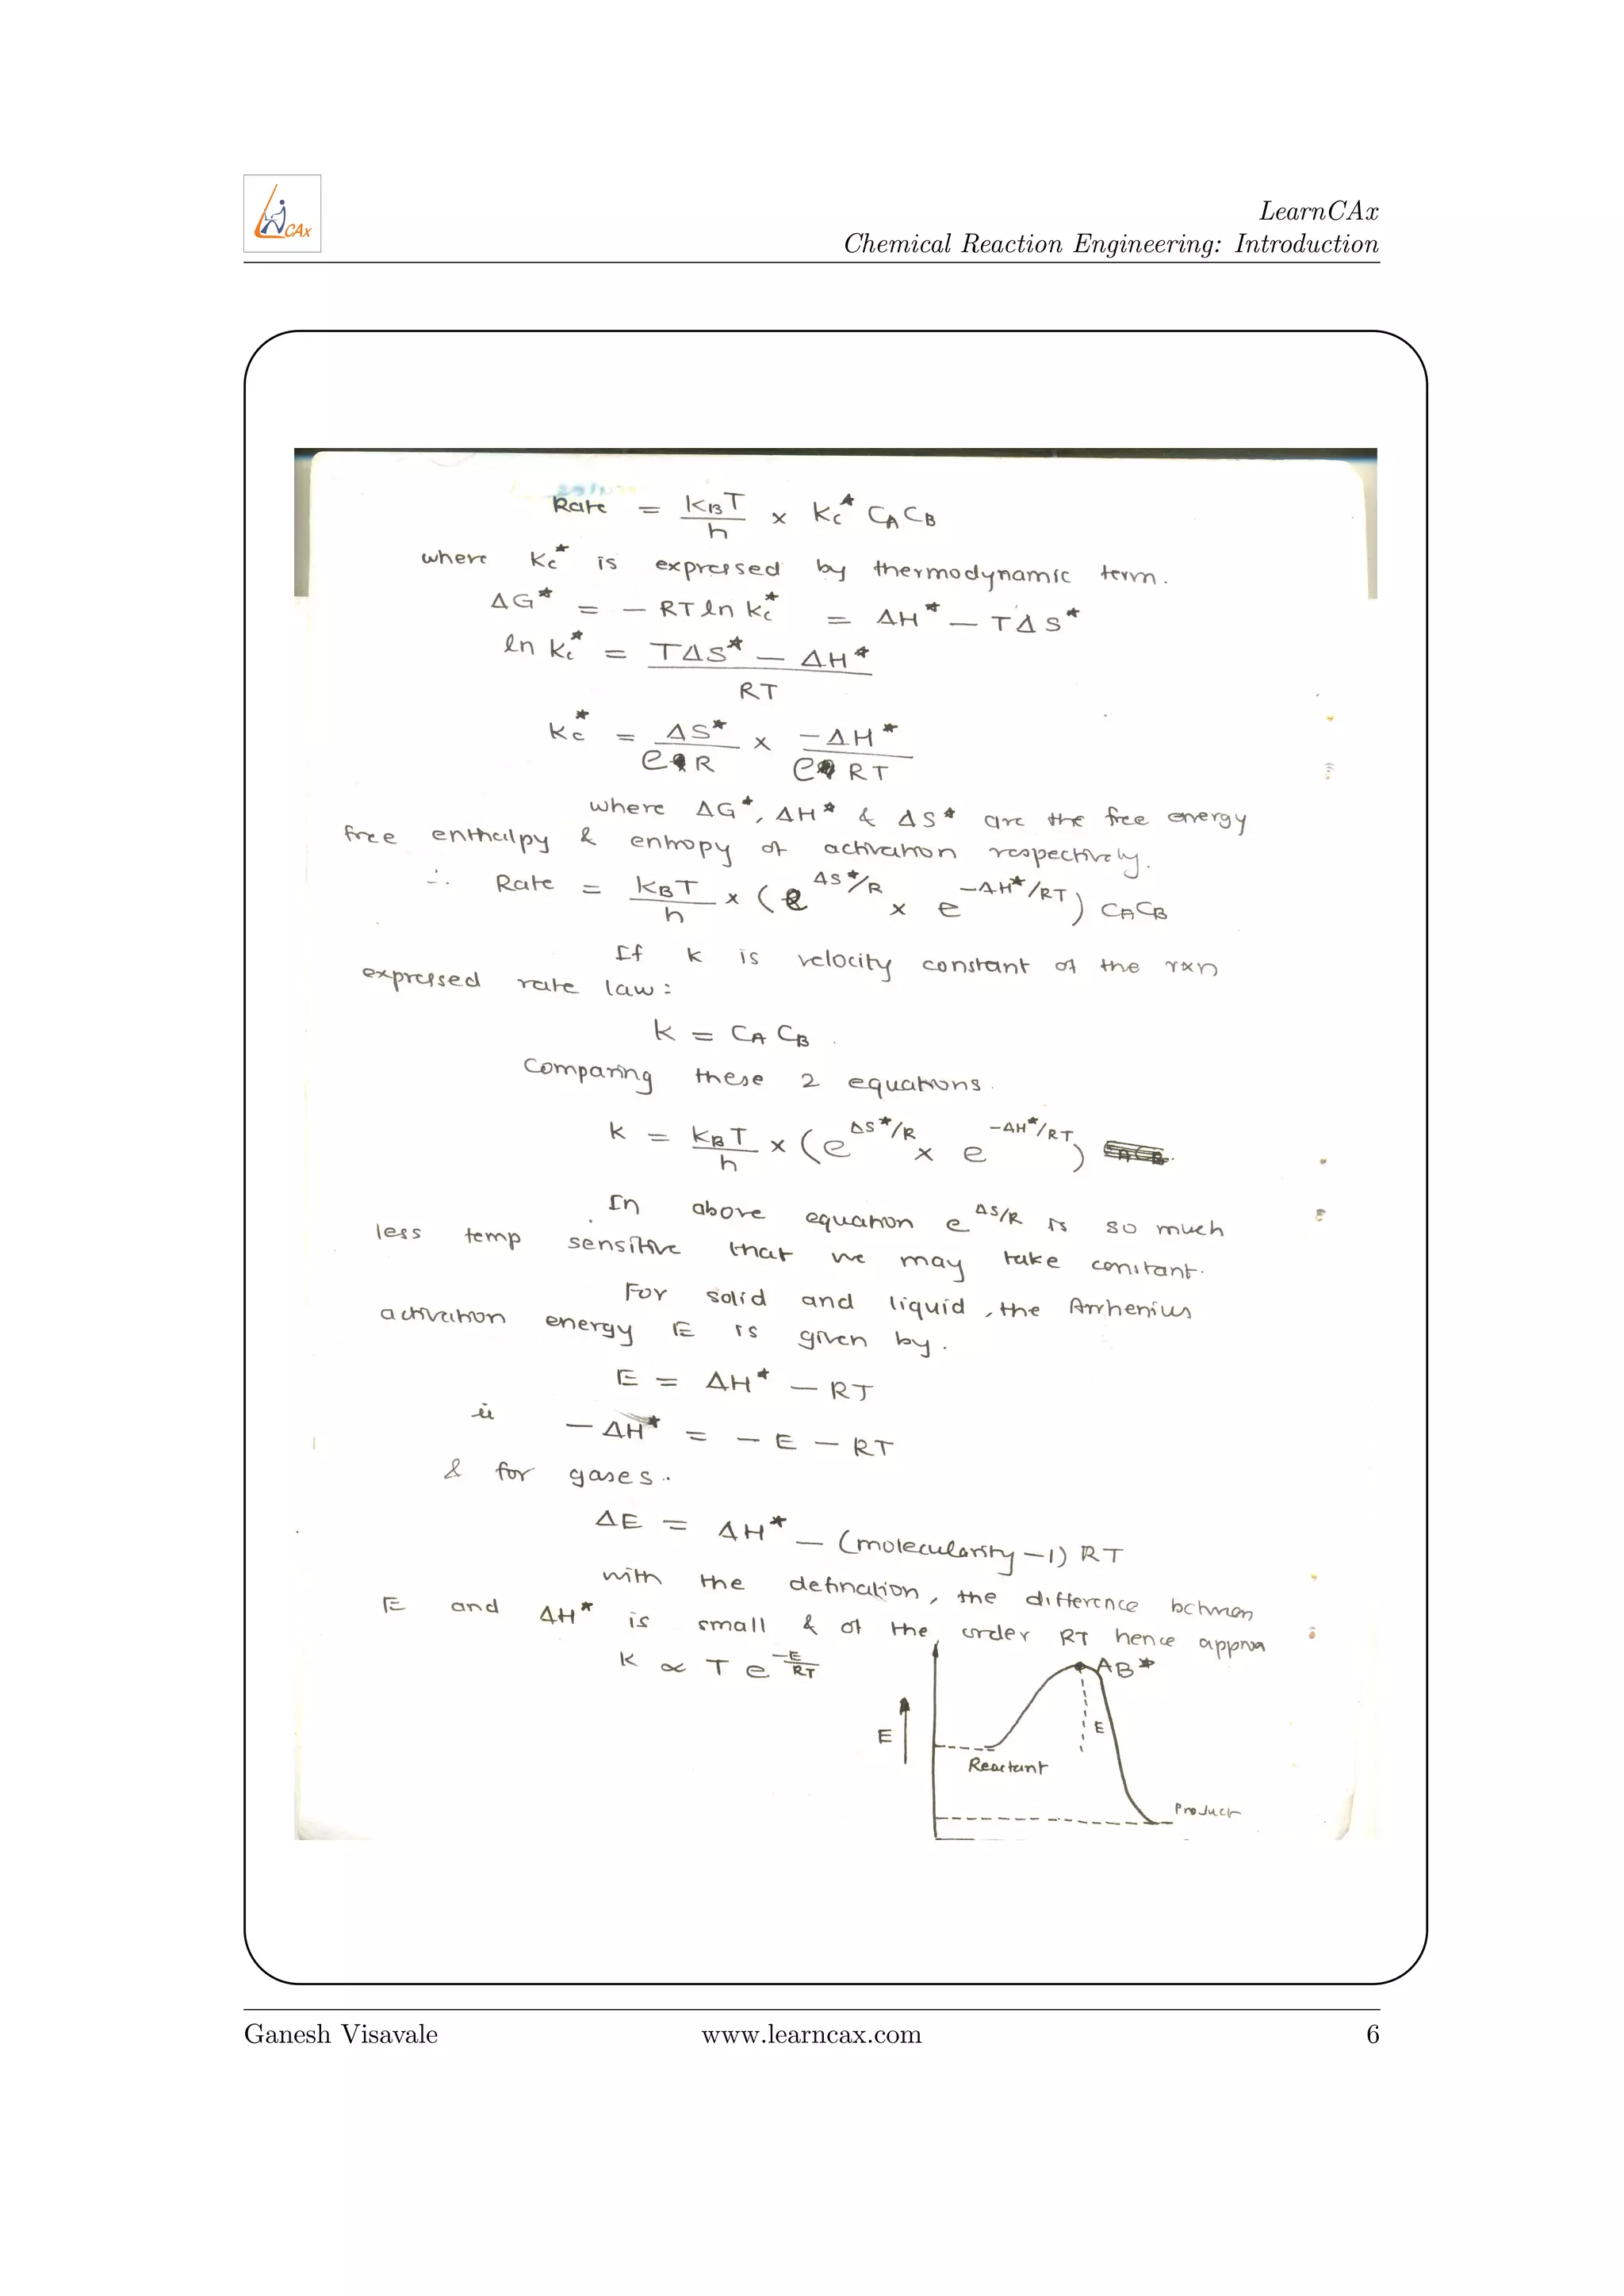 CAx
LearnCAx
Chemical Reaction Engineering: Introduction
Rate = kBT/h × Kc* CA CB
where Kc* is expressed by thermodynamic term.
ΔG* = − RT ln Kc* = ΔH* − TΔS*
ln Kc* = TΔS* − ΔH* / RT
Kc* = ΔS* / e R × −ΔH* / e RT
where ΔG*, ΔH* & ΔS* are the free energy
free enthalpy & entropy of activation respectively.
∴ Rate = kBT/h × (e^ΔS*/R × e^−ΔH*/RT) CACB
If k is velocity constant of the rxn
expressed rate law :
k = CA CB .
Comparing these 2 equations.
k = kBT/h × (e^ΔS*/R × e^−ΔH*/RT)
In above equation e^ΔS/R is so much
less temp sensitive that we may take constant.
For solid and liquid, the Arrhenius
activation energy E is given by.
E = ΔH* − RT
ie −ΔH* = − E − RT
& for gases.
ΔE = ΔH* − (molecularity −1) RT
with the defination, the difference between
E and ΔH* is small & of the order RT hence approx
k ∝ T e^−E/RT
AB*
E
E
Reactant
Product
Ganesh Visavale www.learncax.com 6